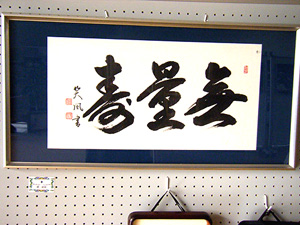 無量壽
笑風書